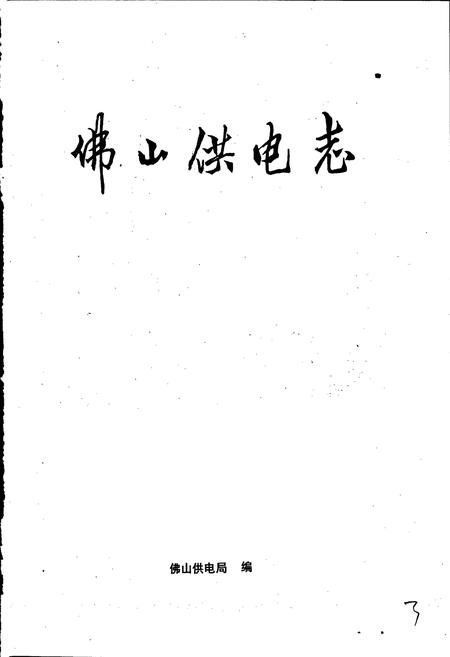 佛山供电志
佛山供电局 编
3